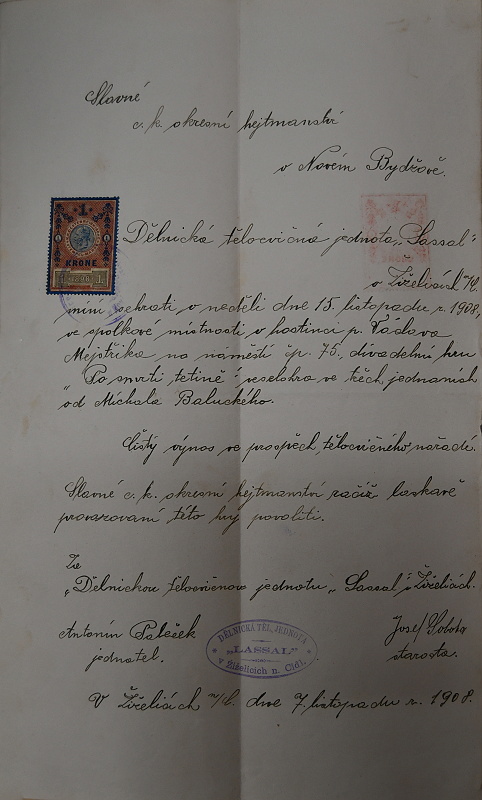 Slavné
c. k. okresní hejtmanství
v Novém Bydžově.
1
KRONE
1898
Dělnická tělocvičná jednota „Lassal“
v Žiželicích n/C.
míní sehrati v neděli dne 15. listopadu r. 1908,
ve spolkové místnosti v hostinci p. Václava
Mejstříka na náměstí čp. 75., divadelní hru
„Po smrti tetině“ veselohra ve třech jednáních
od Michala Baluckého.
Čistý výnos ve prospěch tělocvičného nářadí.
Slavné c. k. okresní hejtmanství račiž laskavě
provozovaní této hry povoliti.
Za
„Dělnickou tělocvičnou jednotu „Lassal“ v Žiželicích.
Antonín
Josef Sobota
jednatel.
starosta.
DĚLNICKÁ TĚL. JEDNOTA
„LASSAL“
v Žiželicích n. Cidl.
V Žiželicích n/C. dne 7 listopadu r. 1908.